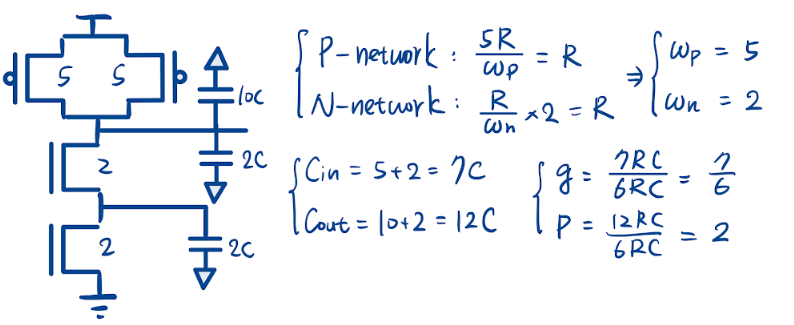 5 5
10C
2
2C
2
2C
P-network : 5R/ωp = R
N-network : R/ωn × 2 = R
⇒ ωp = 5
ωn = 2
Cin = 5+2 = 7C
Cout = 10+2 = 12C
g = 7RC/6RC = 7/6
P = 12RC/6RC = 2